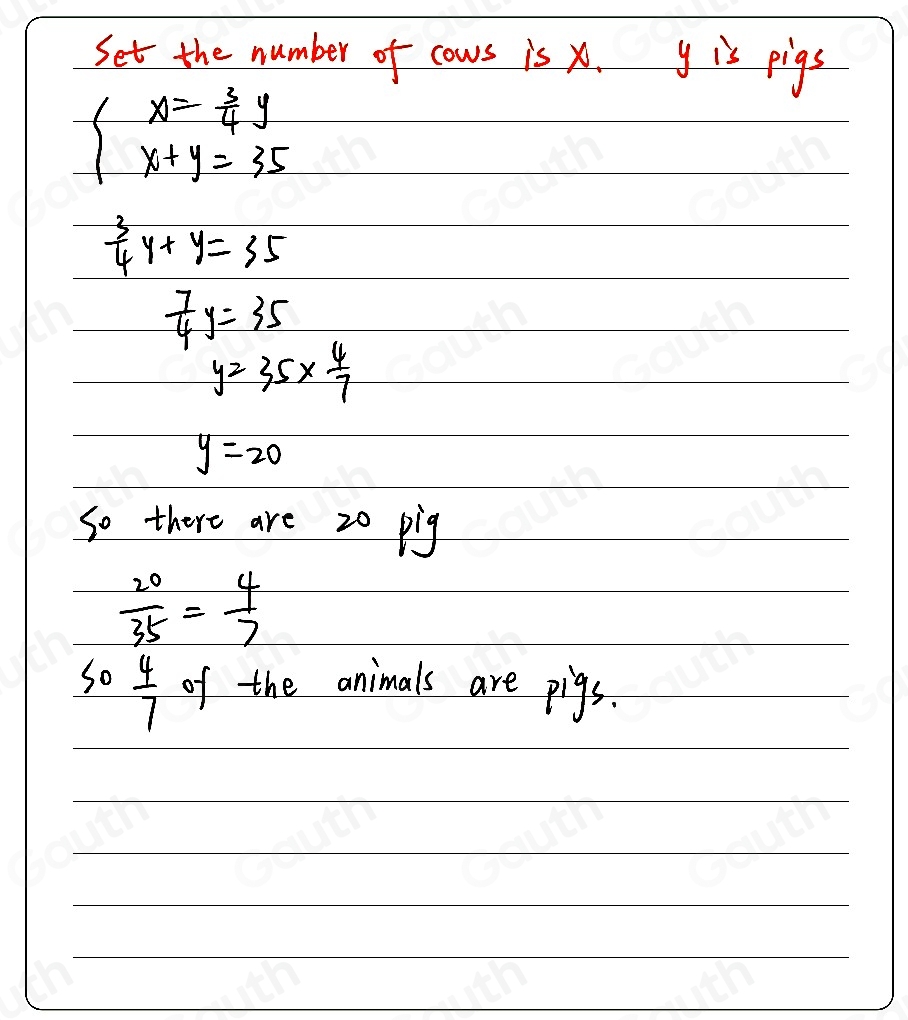 Set the number of cows is x. y is pigs
{ x = 3/4 y
x + y = 35
3/4 y + y = 35
7/4 y = 35
y = 35 × 4/7
y = 20
So there are 20 pig
20/35 = 4/7
So 4/7 of the animals are pigs.